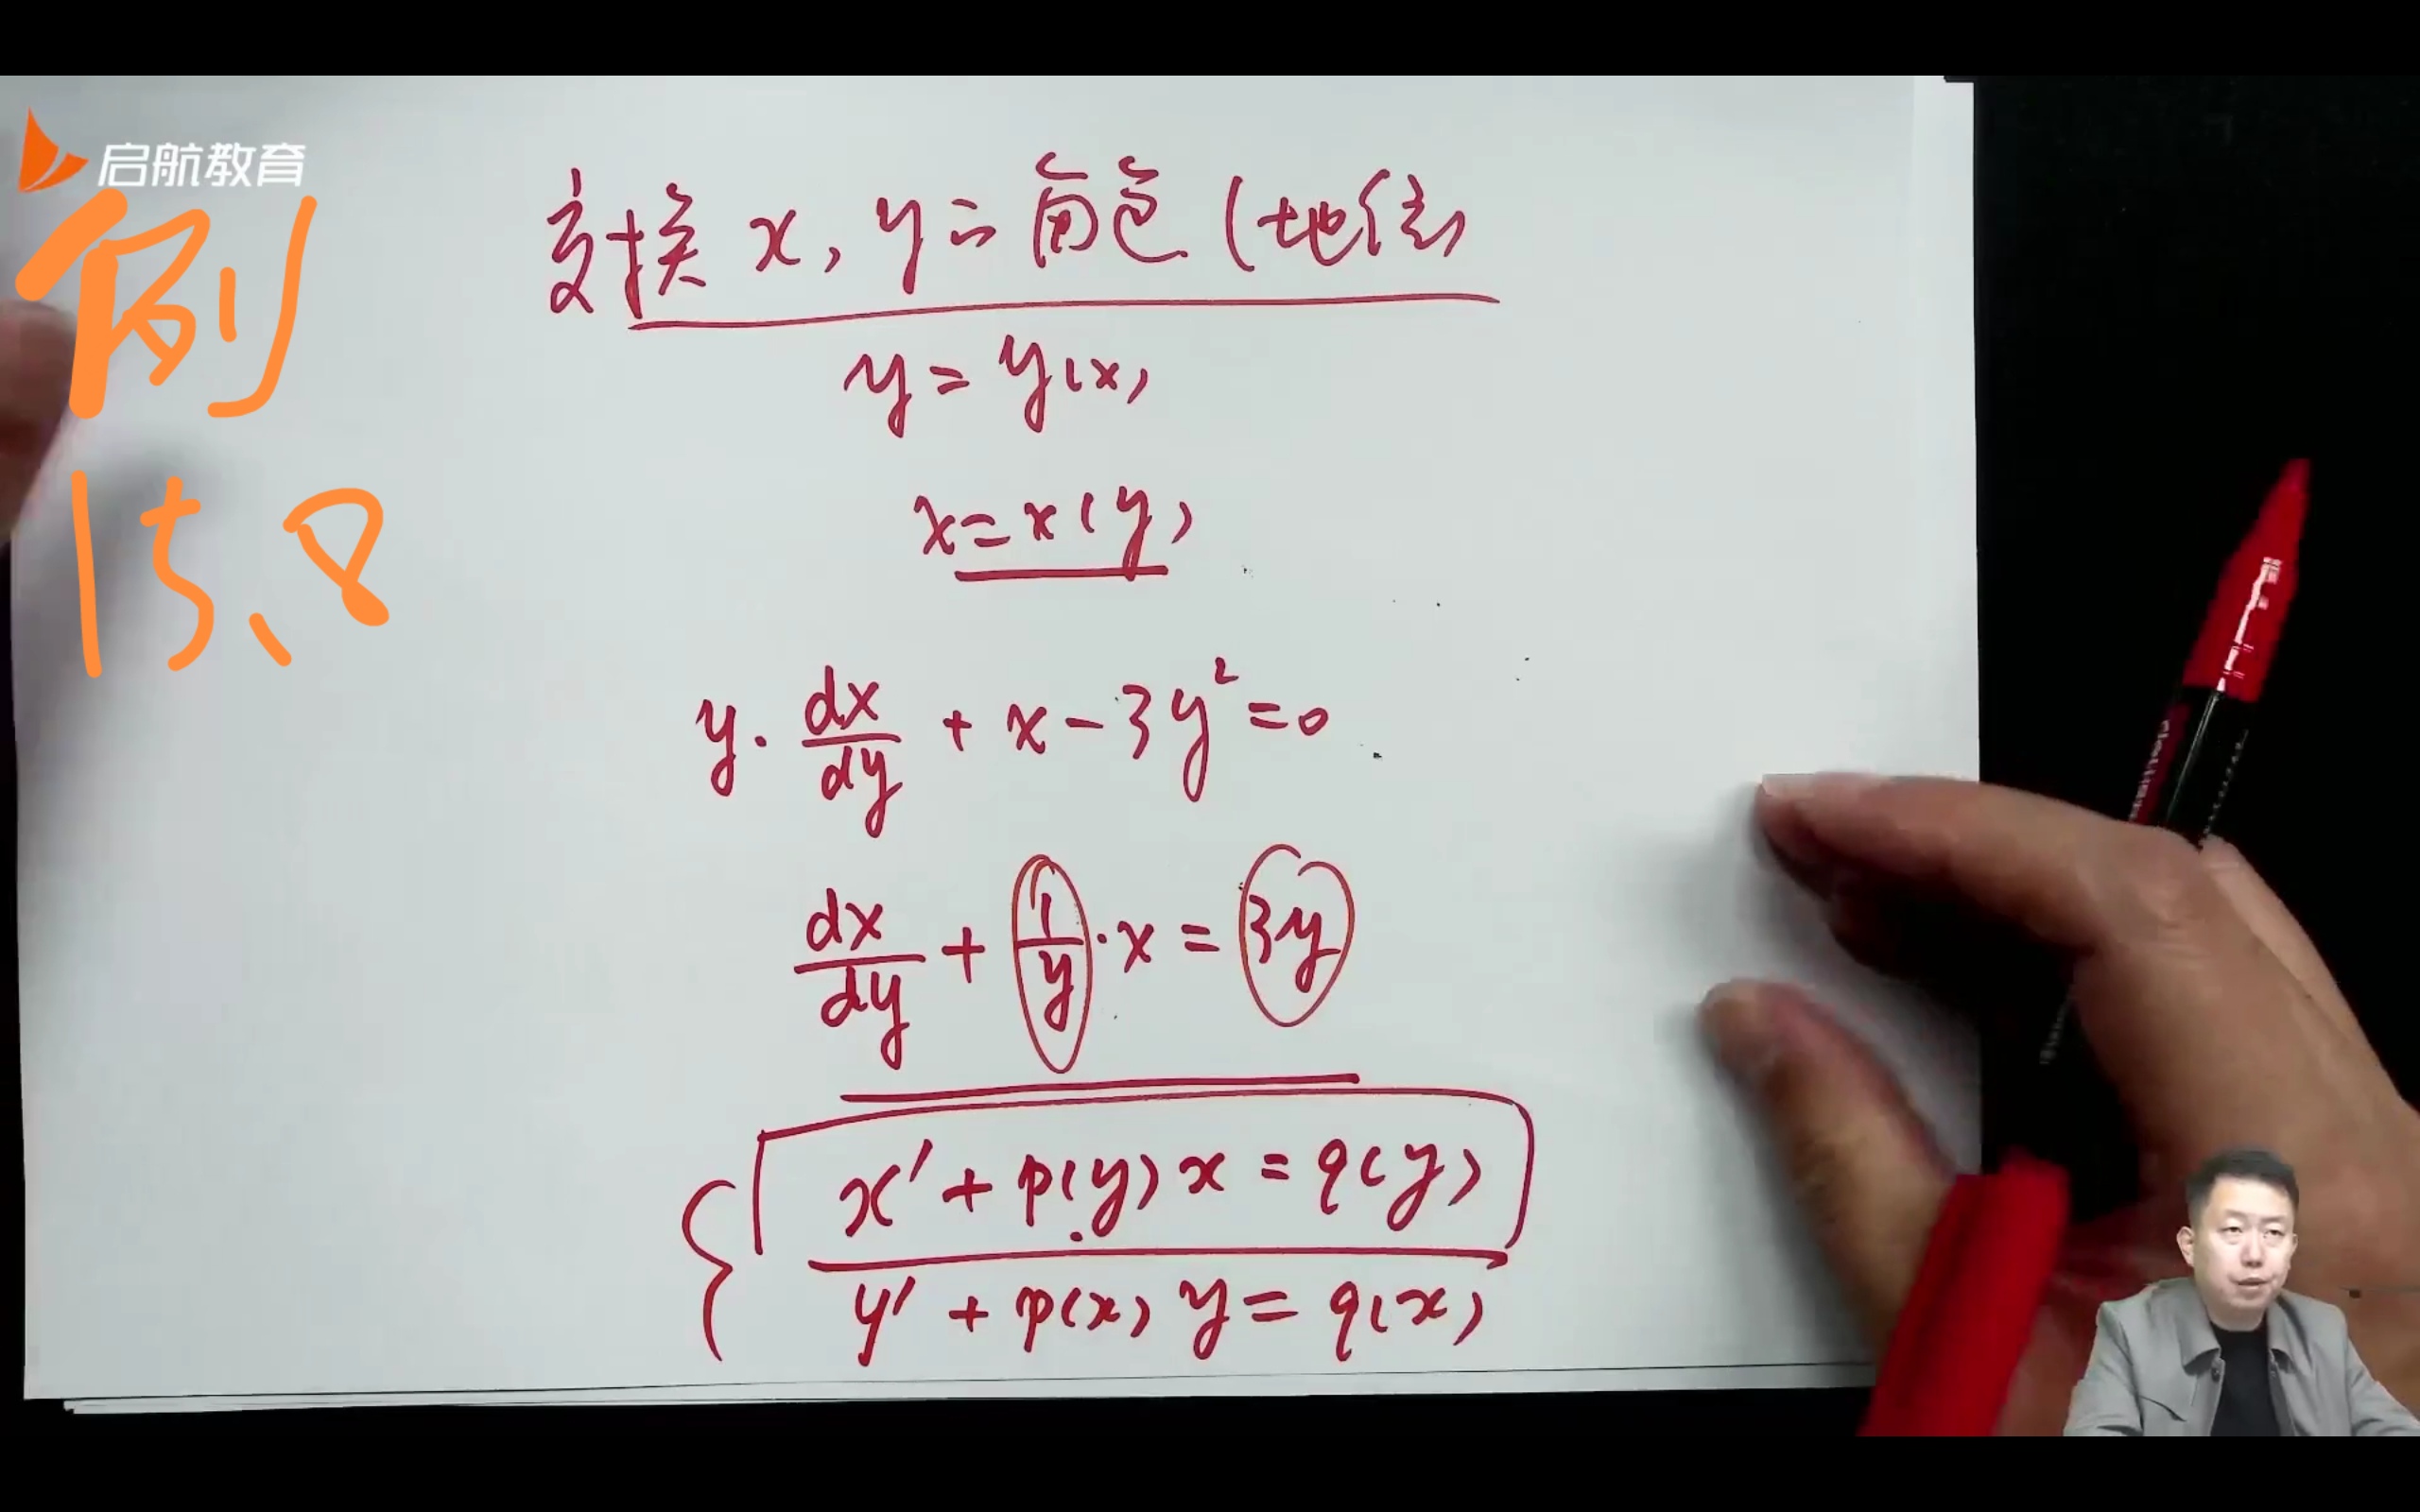 启航教育
例
15.8
交换 x, y 之 角色 (地位)
y = y(x)
x = x(y)
y · dx/dy + x - 3y² = 0
dx/dy + 1/y · x = 3y
x′ + p(y) x = q(y)
y′ + p(x) y = q(x)